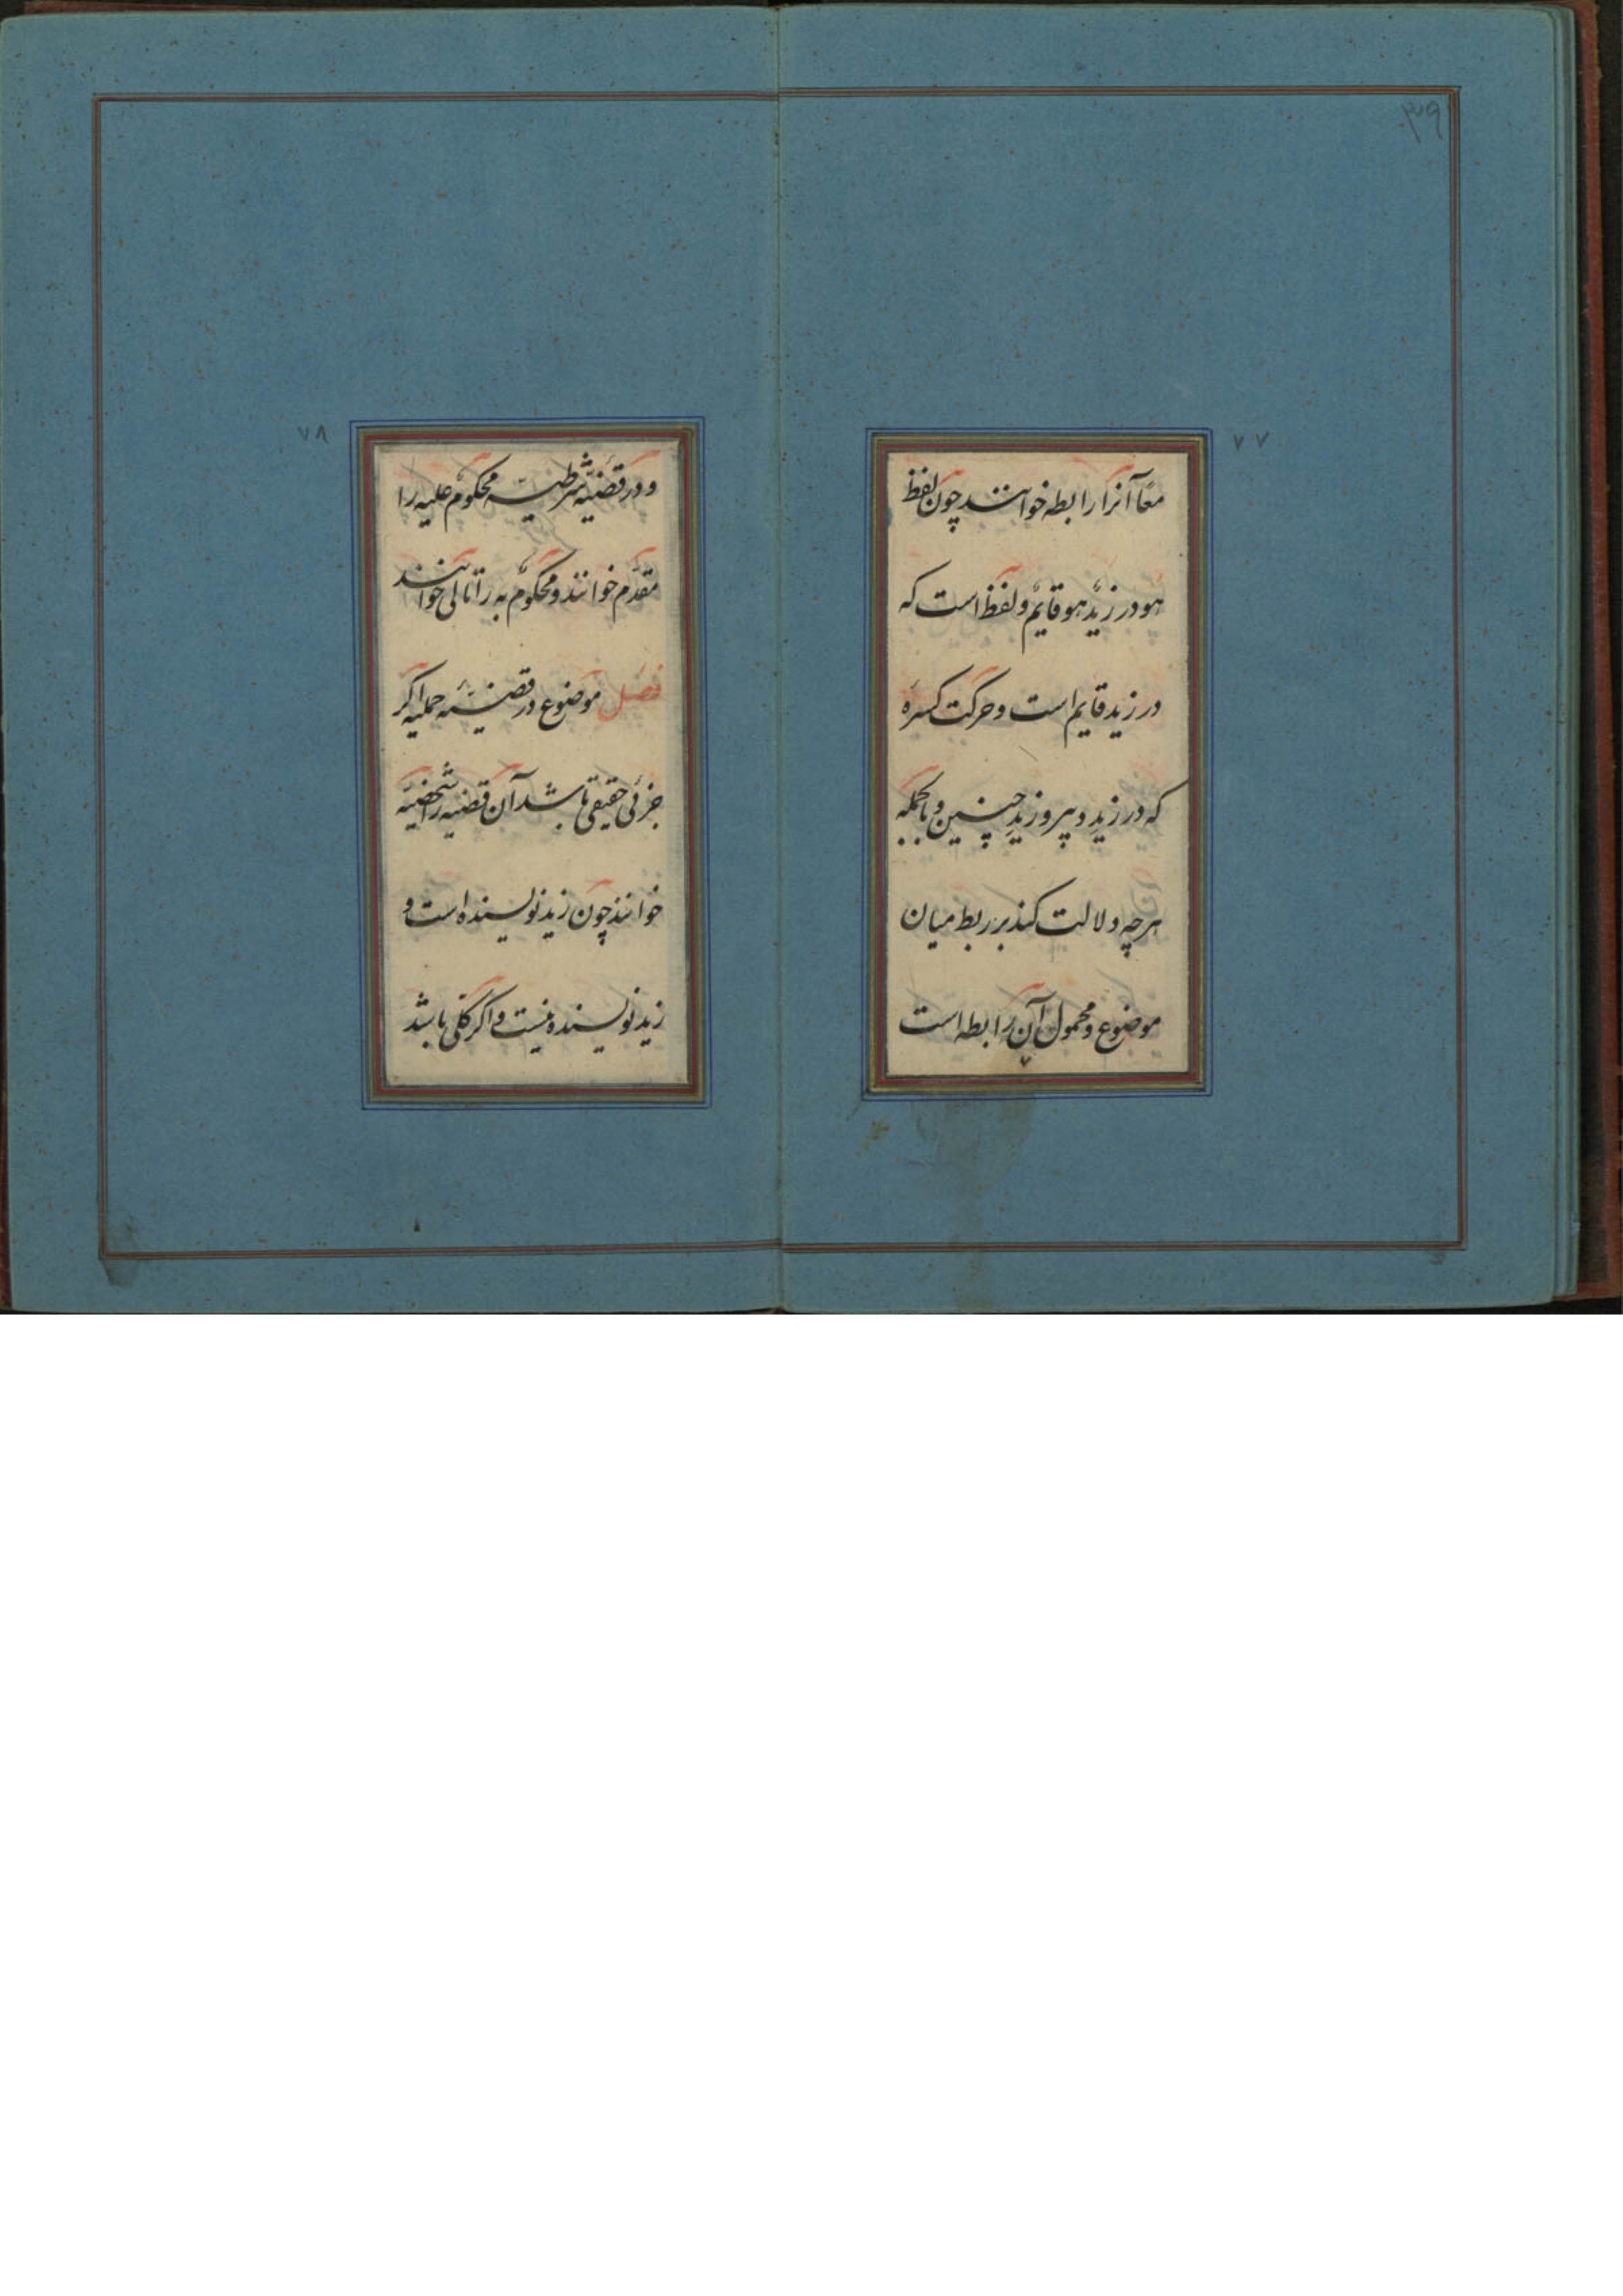 ۳۹
۷۷
معًا آنرا رابطه خوانند چون لفظ
هو در زیدٌ هو قایمٌ و لفظ است که
در زید قایم است و حرکت کسرهٔ
که در زیدِ دبیر و زیدِ چنین و بالجمله
هرچه دلالت کند بر ربط میان
موضوع و محمول آن رابطه است
۷۸
و در قضیّهٔ شرطیه محکومٌ علیه را
مقدّم خوانند و محکومٌ به را تالی خوانند
فصل موضوع در قضیّهٔ حملیه اگر
جزئی حقیقی باشد آن قضیه را شخصیّه
خوانند چون زید نویسنده است و
زید نویسنده نیست و اگر کلّی باشد